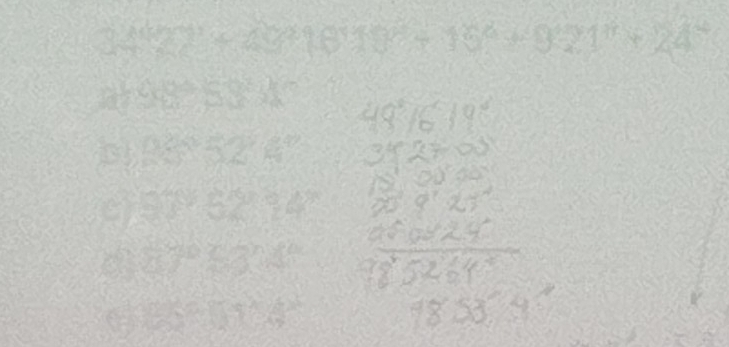 34°27' + 49°16'19" + 15° + 9'21" + 24"
a) 98° 53' 4"
b) 98° 52' 4"
c) 97° 52' 14"
d) 87° 53' 4"
e) 85° 51' 4"
49° 16' 19"
34° 27' 00"
15° 00' 00"
00° 9' 21"
00° 00' 24"
98° 52' 64"
98 53' 4"